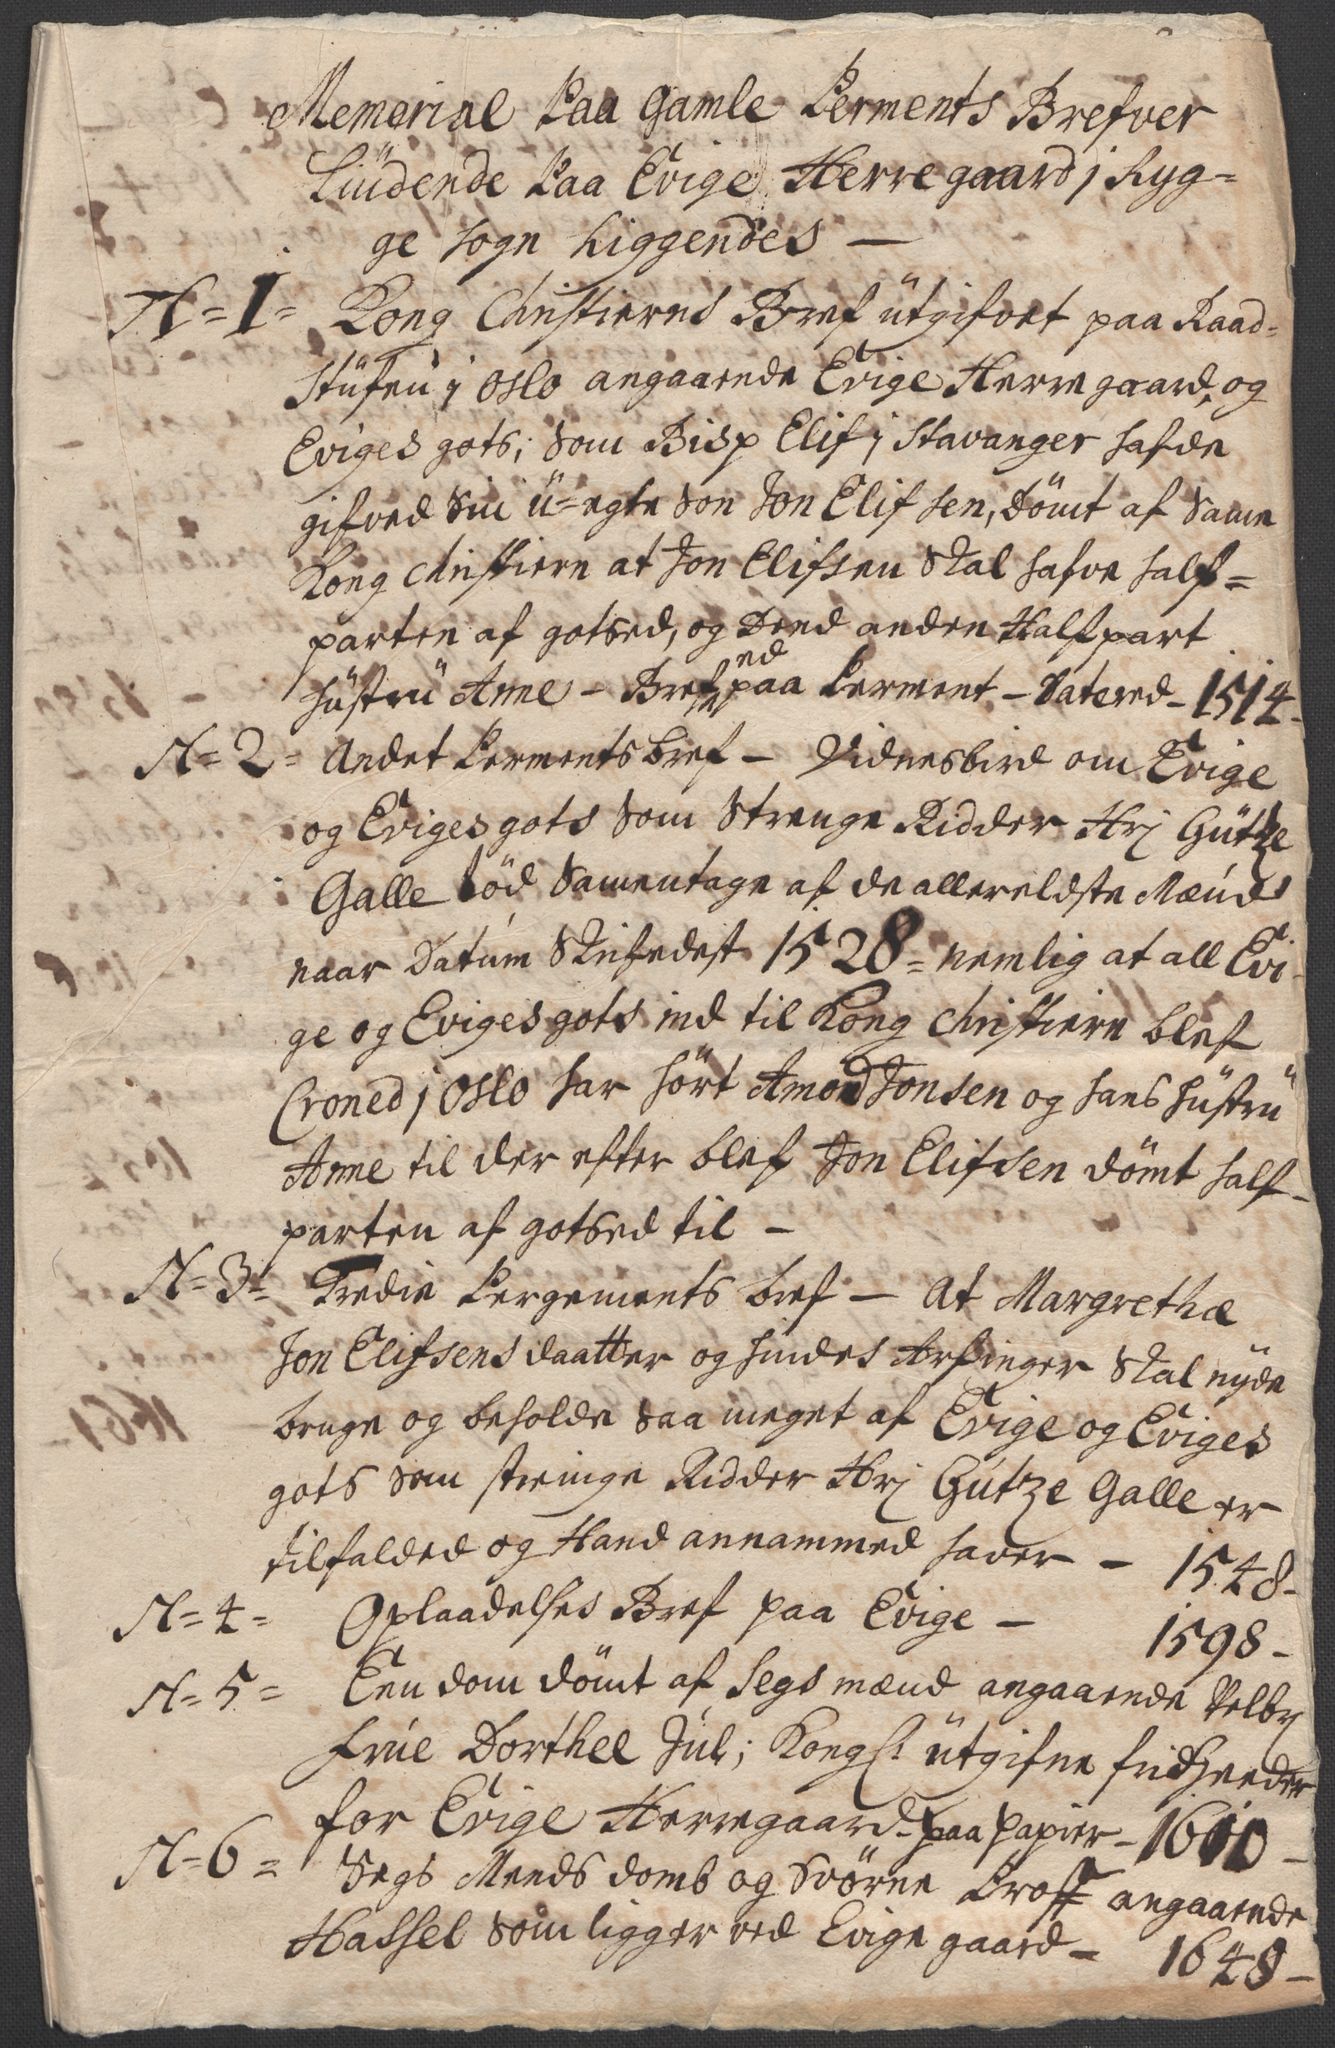 Memorial Paa Gamle Perments Brefver
Lüdende Paa Evige Herregaard j Ryg=
ge sogn liggendes —
N=1= Kong Christierns Bref ütgifvet paa Raad=
stüfen j Oslo angaaende Evige Herregaard, og
Eviges gots; som Bisp Elif j Stavanger hafde
gifved sin ü=egte son Jon Elifsen, dömt af Same
Kong Christiern at Jon Elifsen Skal hafve half=
parten af gotsed, og Dend anden Halfpart
hüstrü Anne – Brefved paa Perment – Datered – 1514 –
N=2= Andet Perments bref – Vidnesbird om Evige
og Eviges gots som Strenge Ridder Hrj Gütze
Galle lod Samentage af de allereldste Mænd
naar Datum Skrifvedest 1528 = nemlig at all Evi-
ge og Eviges gots ind til Kong Christiern blef
Croned j Oslo har hört Amond Jonsen og hans hüstrü
Anne til der efter blef Jon Elifsen dömt half-
parten af gotsed til –
N=3= Tredie Pergements bref – At Margrethæ
Jon Elifsens daatter og hindes Arfinger Skal nyde
bruge og beholde saa meget af Evige og Eviges
gots som strenge Ridder Hrj Gütze Galle er
tilfalded og Hand annammed haver – 1548 –
N=4= Oplaadelses Bref paa Evige – 1598 –
N=5= Een dom dömt af segs mænd angaaende Velbrj
Früe Dorthee Jül; Kongl. ütgifne friheeder
for Evige Herregaard – paa papier – 1610 –
N=6= Segs Mends domb og Svörne Prof angaaende
Hassel som ligger ved Evige gaard – 1648 –